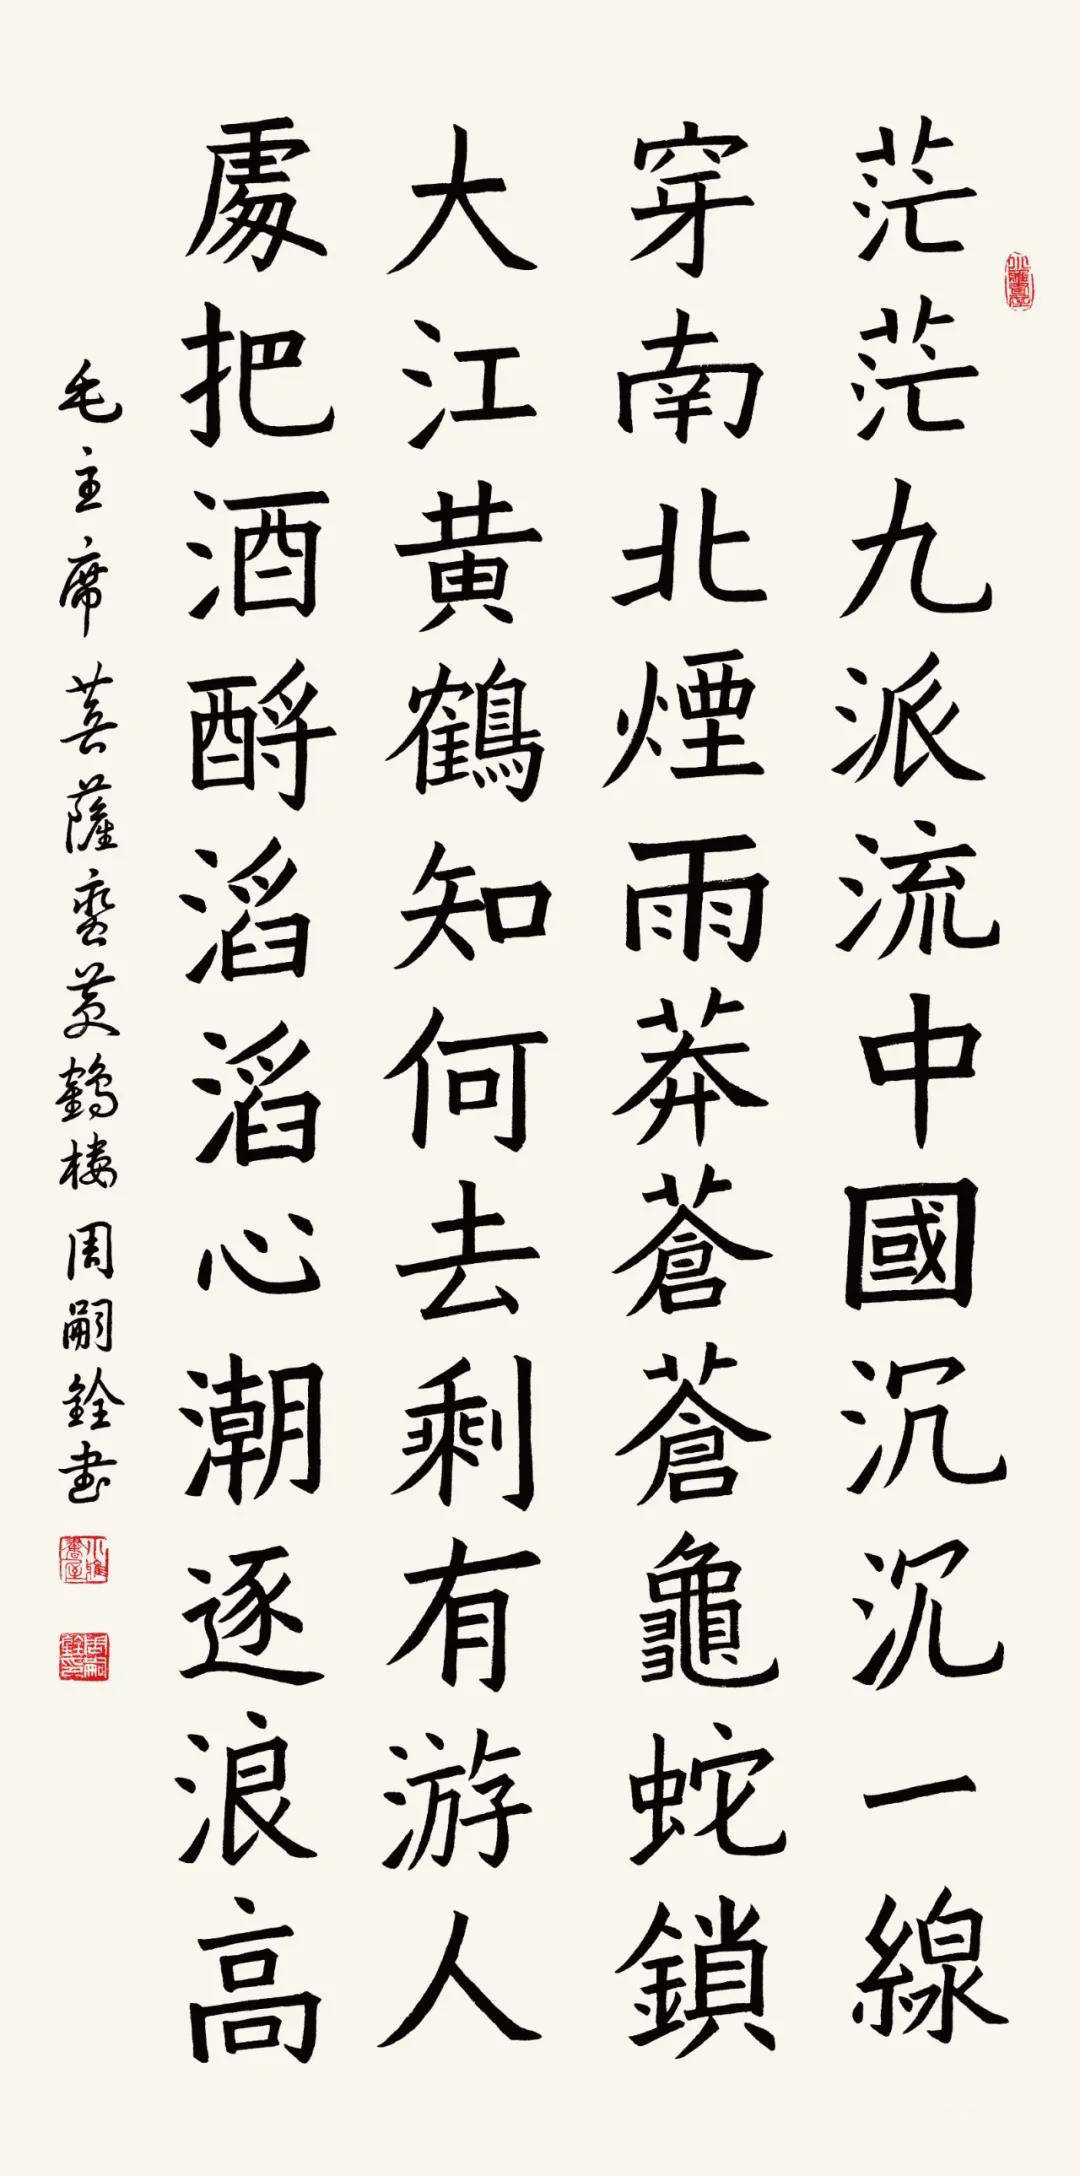 茫茫九派流中國沉沉一線
穿南北煙雨莽蒼蒼龜蛇鎖
大江黄鶴知何去剩有游人
處把酒酹滔滔心潮逐浪高
毛主席菩薩蛮黄鶴楼周嗣銓书